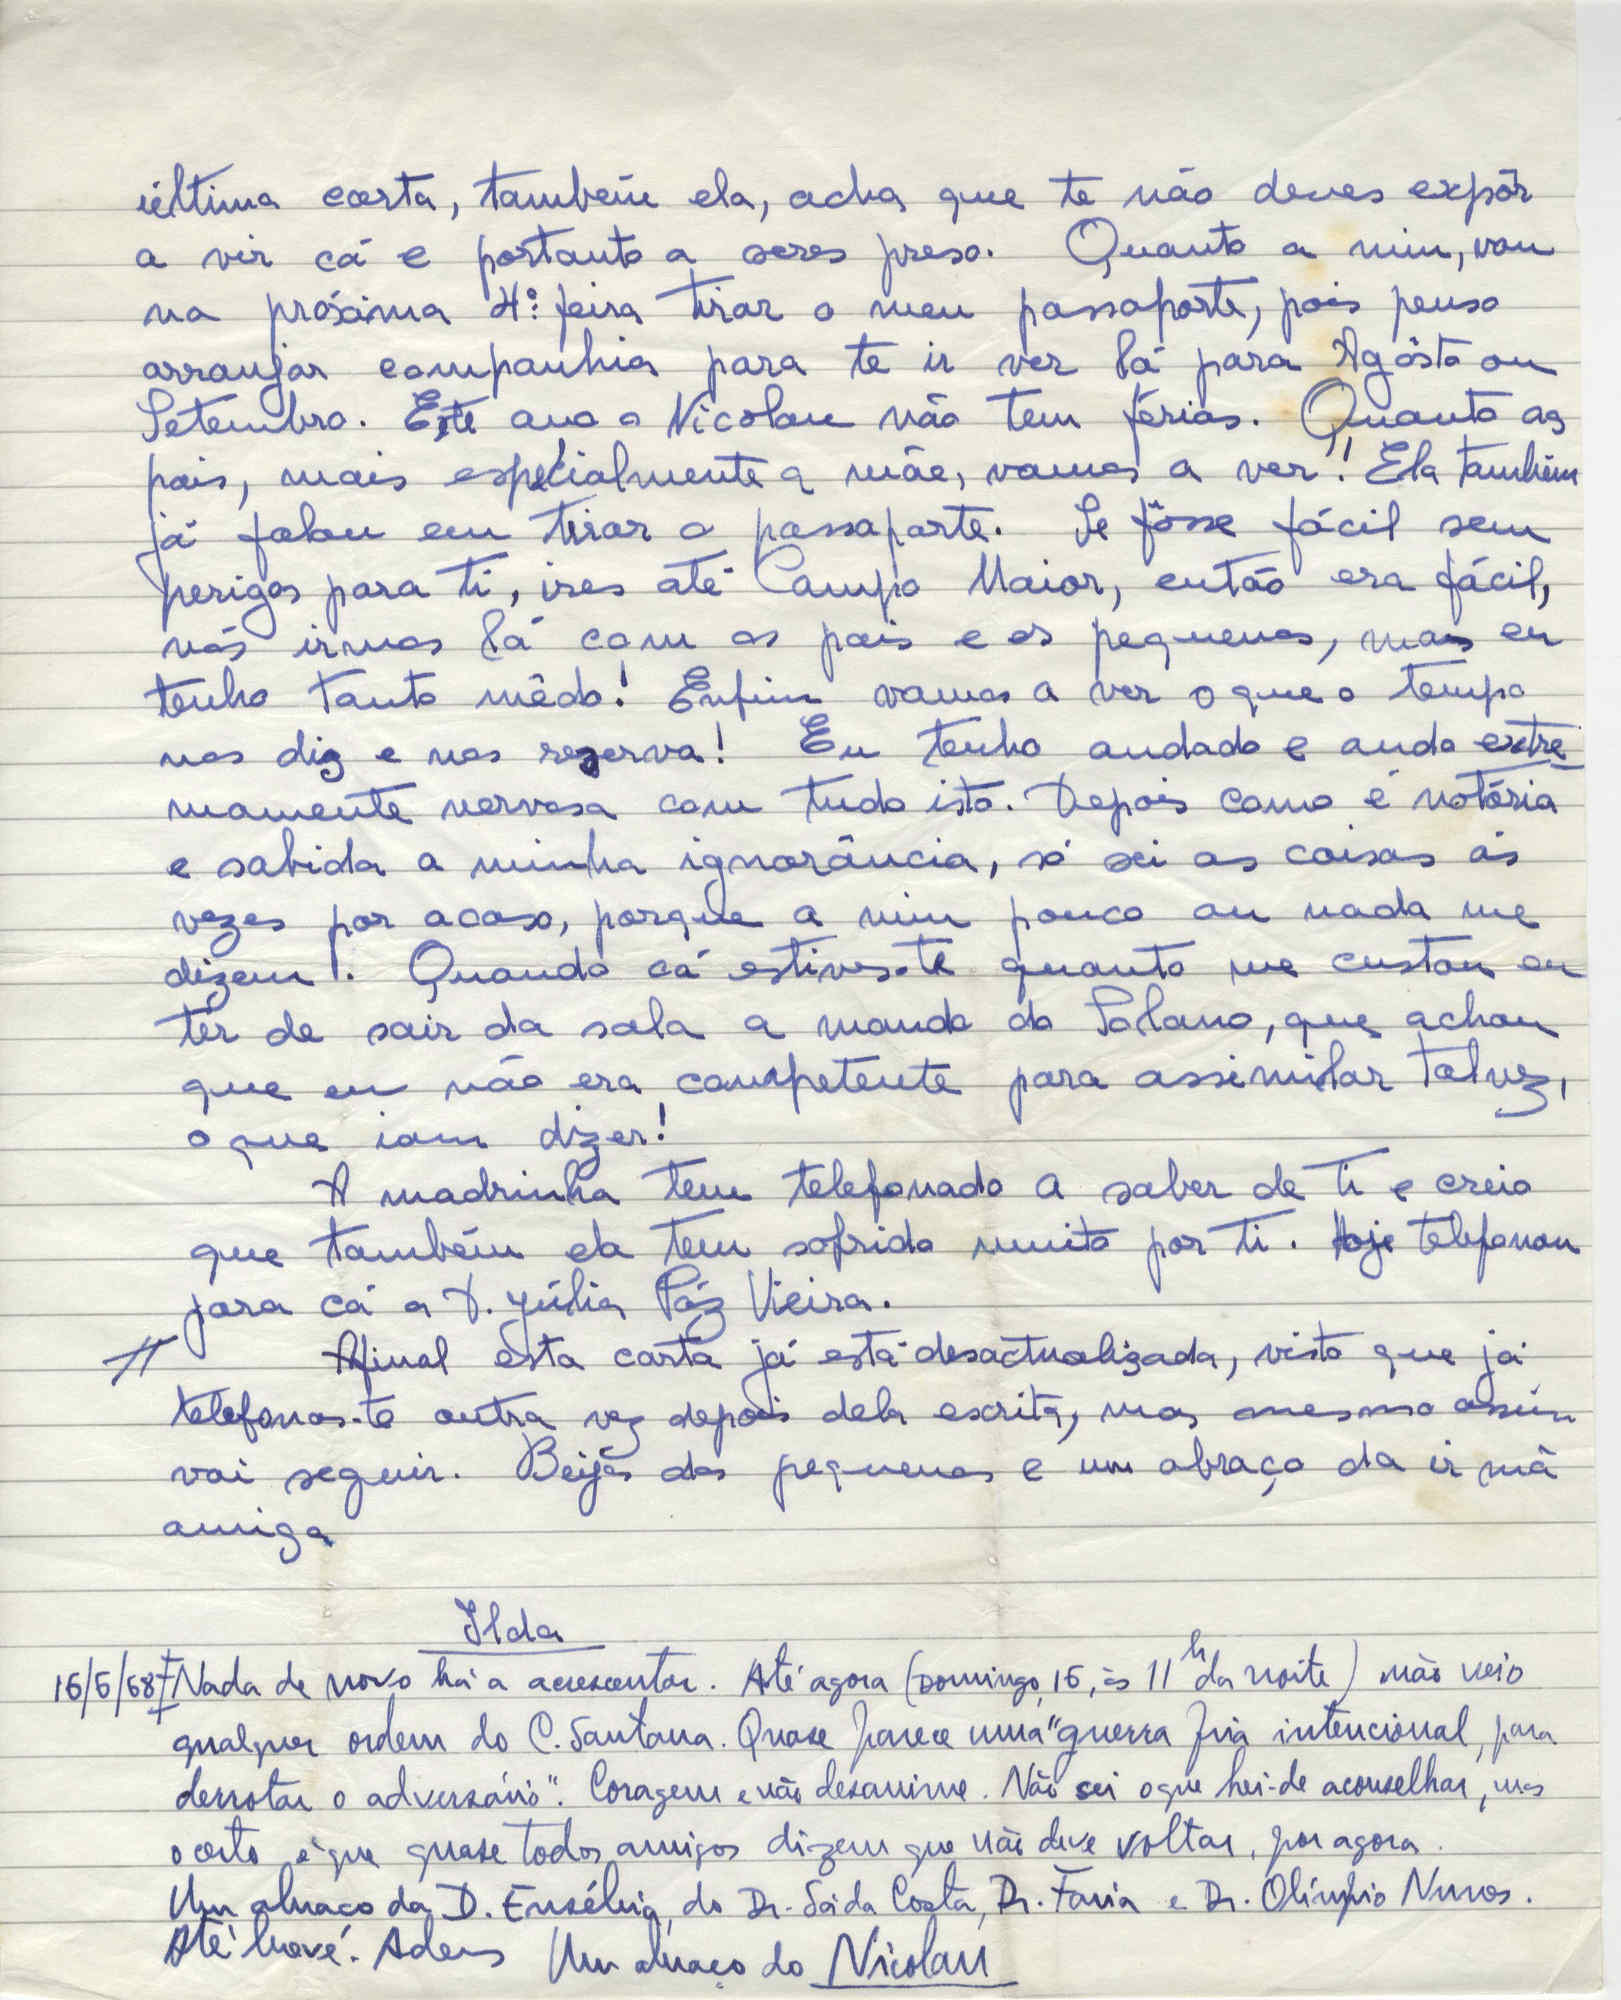 última carta, também ela, acha que te não deves expôr
a vir cá e portanto a seres preso. Quanto a mim, vou
na próxima 4ª feira tirar o meu passaporte, pois penso
arranjar companhia para te ir ver lá para Agôsto ou
Setembro. Este ano o Nicolau não tem férias. Quanto aos
pais, mais especialmente a mãe, vamos a ver! Ela também
já falou em tirar o passaporte. Se fôsse fácil sem
perigos para ti, ires até Campo Maior, então era fácil,
nós irmos lá com os pais e os pequenos, mas eu
tenho tanto mêdo! Enfim vamos a ver o que o tempo
nos diz e nos reserva! Eu tenho andado e ando extre
mamente nervosa com tudo isto. Depois como é notória
e sabida a minha ignorância, só sei as coisas às
vezes por acaso, porque a mim pouco ou nada me
dizem!. Quando cá estives-te quanto me custou eu
ter de sair da sala a mando do Solano, que achou
que eu não era competente para assimilar talvez,
o que iam dizer!
A madrinha tem telefonado a saber de ti e creio
que também ela tem sofrido muito por ti. Hoje telefonou
para cá a D. Júlia Páz Vieira.
// Afinal esta carta já está desactualizada, visto que já
telefonas-te outra vez depois dela escrita, mas mesmo assim
vai seguir. Beijos dos pequenos e um abraço da irmã
amiga
Ilda
16/5/68 Nada de novo há a acrescentar. Até agora (Domingo, 16, às 11h da noite) não veio
qualquer ordem do C. Santana. Quase parece uma "guerra fria intencional, para
derrotar o adversário". Coragem e não desanime. Não sei o que hei-de aconselhar, mas
o certo é que quase todos amigos dizem que não deve voltar, por agora.
Um abraço da D. Eusébia, do Dr. Sá da Costa, Dr. Faria e Dr. Olímpio Nunes.
Até breve. Adeus Um abraço do Nicolau